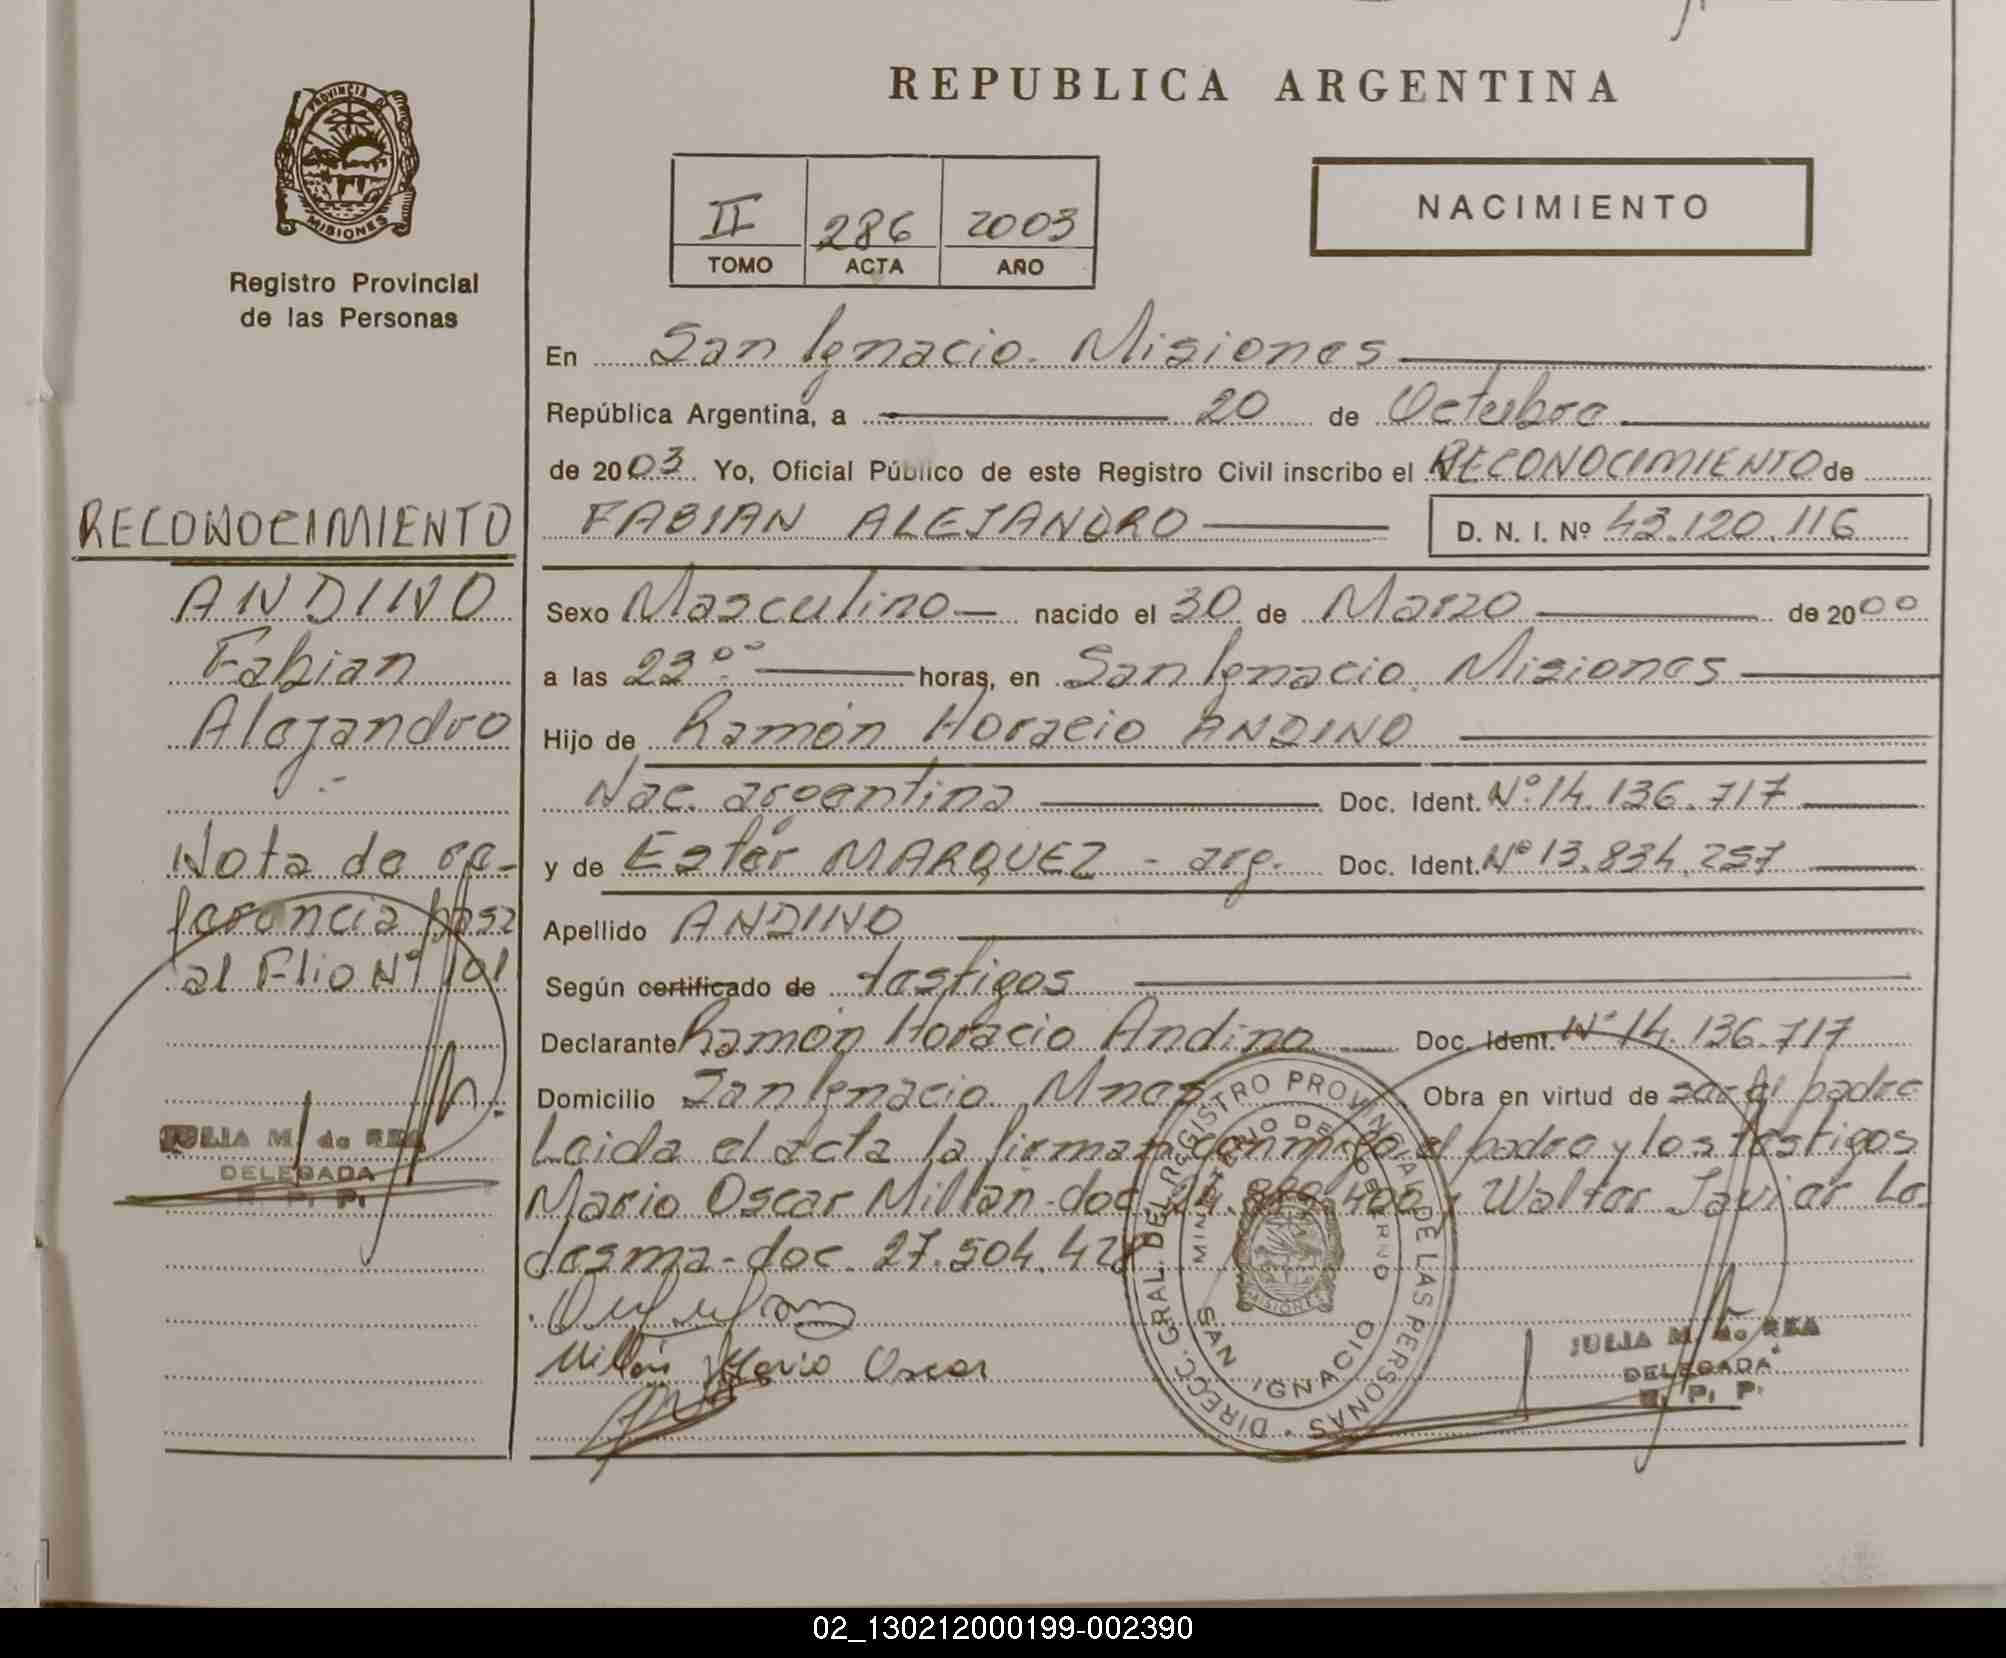 REPUBLICA ARGENTINA
PROVINCIA DE
MISIONES
Registro Provincial
de las Personas
II 286 2003
TOMO ACTA AÑO
NACIMIENTO
En San Ignacio. Misiones
República Argentina, a 20 de Octubre
de 2003. Yo, Oficial Público de este Registro Civil inscribo el RECONOCIMIENTO de
FABIAN ALEJANDRO D. N. I. Nº 43.120.116
Sexo Masculino nacido el 30 de Marzo de 2000
a las 23°° horas, en San Ignacio. Misiones
Hijo de Ramón Horacio ANDINO
Nac. argentina Doc. Ident. Nº 14.136.717
y de Ester MARQUEZ - arg. Doc. Ident. Nº 13.834.257
Apellido ANDINO
Según certificado de testigos
Declarante Ramón Horacio Andino Doc. Ident. Nº 14.136.717
Domicilio San Ignacio. Mnes Obra en virtud de ser el padre
Leida el acta la firman conmigo el padre y los testigos
Mario Oscar Millan-doc. y Walter Javier Le
desma-doc. 27.504.428
Millán Mario Oscar
RECONOCIMIENTO
ANDINO
Fabian
Alejandro
Nota de re-
ferencia pasa
al Flio Nº 101
JULIA M. de REA
DELEGADA
R. P. P.
DIRECC. GRAL. DEL REGISTRO PROVINCIAL DE LAS PERSONAS
MINISTERIO DE GOBIERNO
SAN IGNACIO
MISIONES
JULIA M. de REA
DELEGADA
R. P. P.
02_130212000199-002390